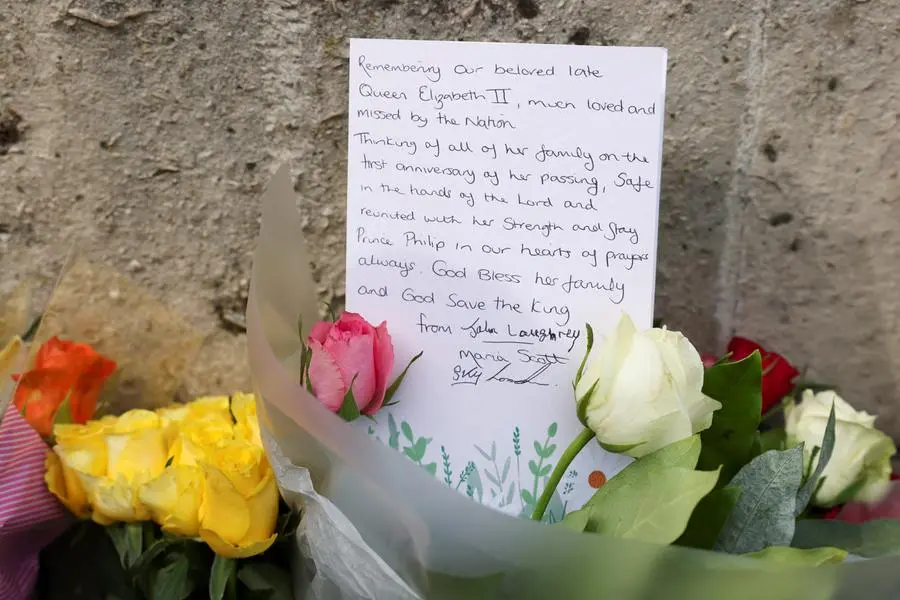 Remembering our beloved late
Queen Elizabeth II, much loved and
missed by the Nation
Thinking of all of her family on the
first anniversary of her passing, Safe
in the hands of the Lord and
reunited with her Strength and Stay
Prince Philip in our hearts of prayers
always. God Bless her family
and God Save the King
from John Loughrey
Maria Scott